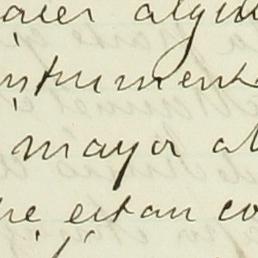 acer algun
instrument
mayor al
he estan co